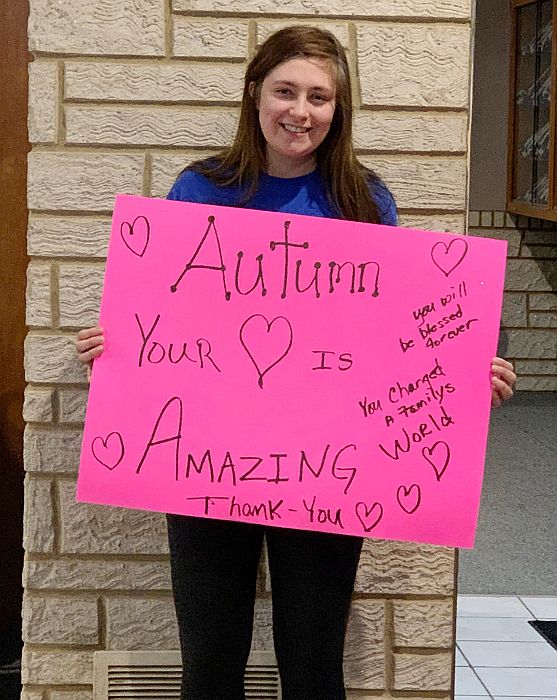 Autumn
Your ♡ is
Amazing
Thank-You
you will
be blessed
forever
You Changed
a Familys
World